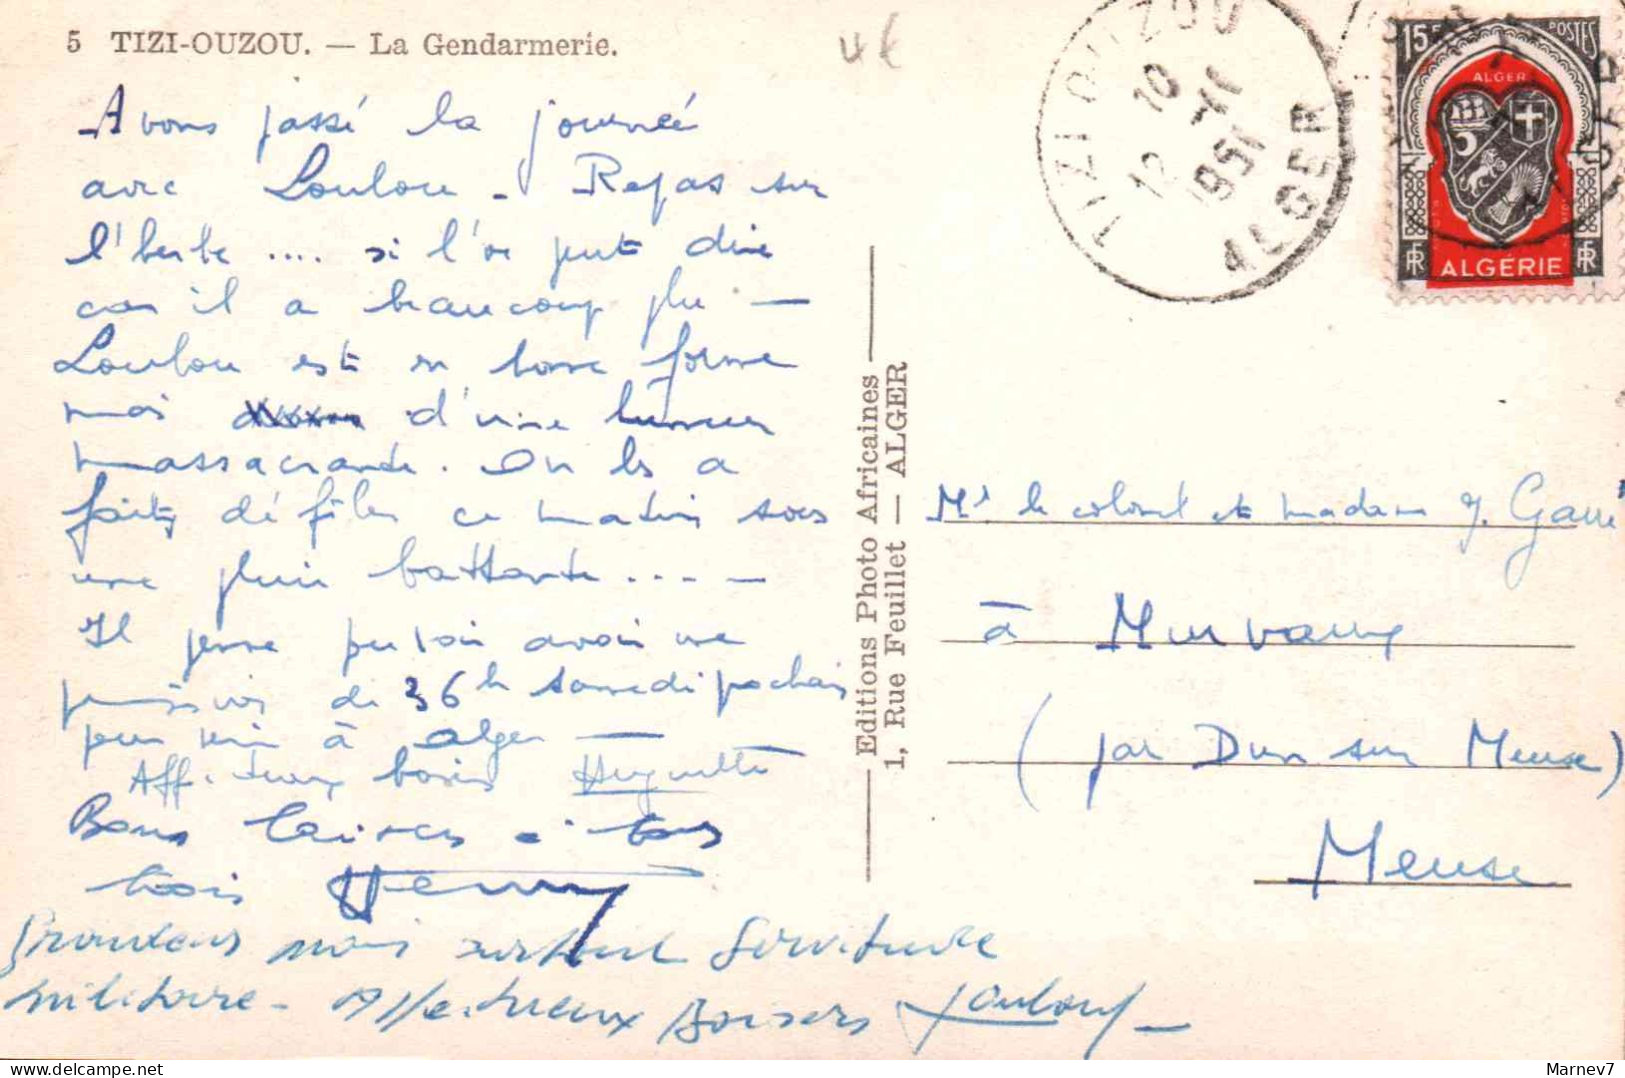 5 TIZI-OUZOU. — La Gendarmerie.
Avons passé la journée
avec Loulou - Repas sur
l'herbe .... si l'on peut dire
car il a beaucoup plu -
Loulou est en bonne forme
mais d'une humeur
massacrante. On les a
fait défiler ce matin sous
une pluie battante .... -
Il pense pouvoir avoir une
permission de 36 h samedi prochain
pour venir à Alger -
Aff. tueux baisers Huguette
Bons baisers à tous
trois Henry
Grandeurs mais surtout Servitude
militaire - Affectueux Baisers Loulou -
Editions Photo Africaines
1, Rue Feuillet — ALGER
TIZI OUZOU
10
12 - 11
1951
ALGER
15F POSTES
ALGER
RF RF
ALGÉRIE
Mr le colonel et madame J.
à Murvaux
(par Dun sur Meuse)
Meuse
Marnev7